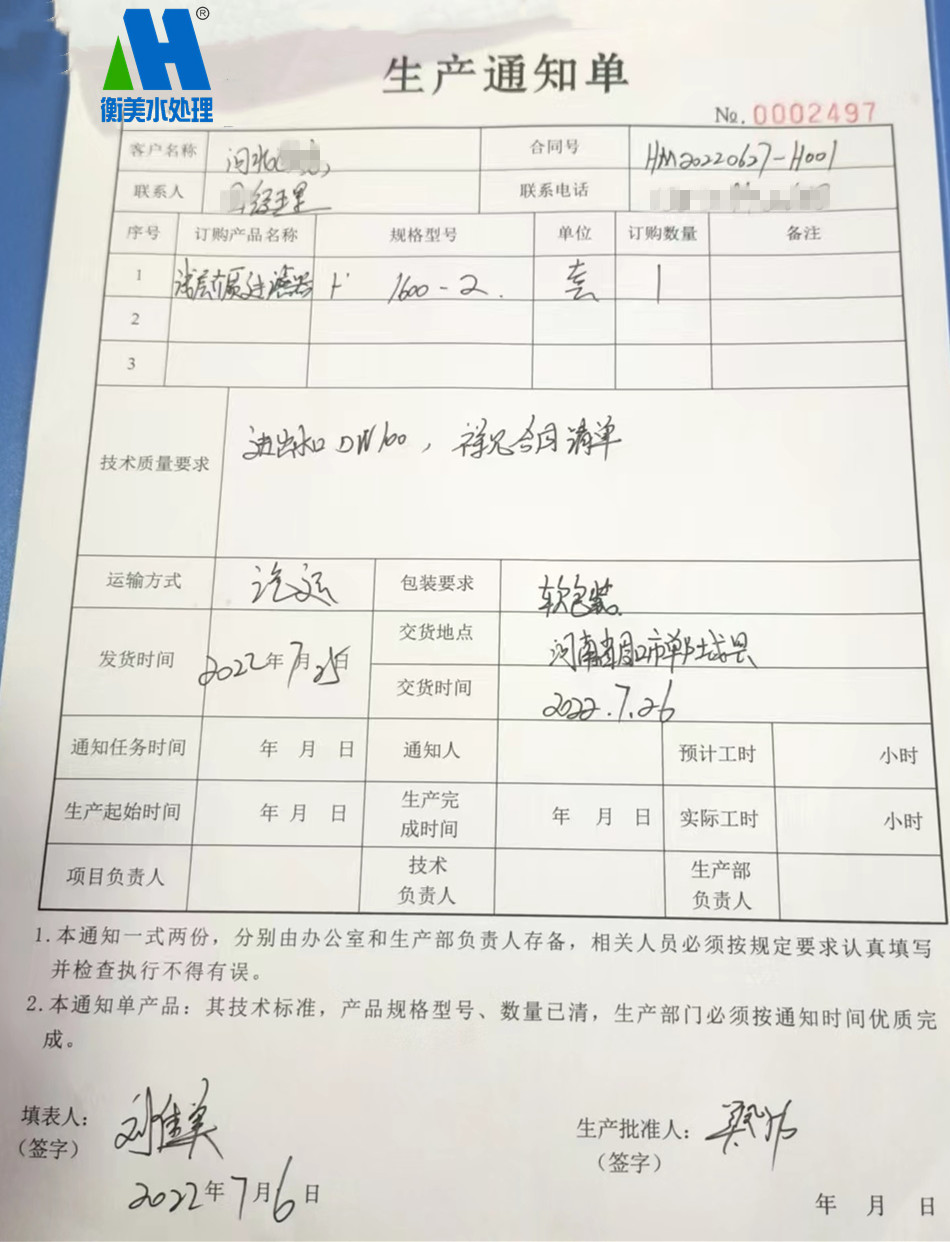 ®
衡美水处理
生产通知单
No. 0002497
客户名称 合同号 HM20220627-H001
联系人 经理 联系电话
序号 订购产品名称 规格型号 单位 订购数量 备注
1 介质过滤器 1600-2 套 1
2
3
技术质量要求 进出水口DN100，详见合同清单
运输方式 汽运 包装要求 软包装
发货时间 2022年7月25日 交货地点 河南省周口市郸城县
交货时间 2022.7.26
通知任务时间 年 月 日 通知人 预计工时 小时
生产起始时间 年 月 日 生产完成时间 年 月 日 实际工时 小时
项目负责人 技术负责人 生产部负责人
1.本通知一式两份，分别由办公室和生产部负责人存备，相关人员必须按规定要求认真填写
并检查执行不得有误。
2.本通知单产品：其技术标准，产品规格型号、数量已清，生产部门必须按通知时间优质完
成。
填表人： 刘佳美 生产批准人：
（签字） （签字）
2022年7月6日 年 月 日